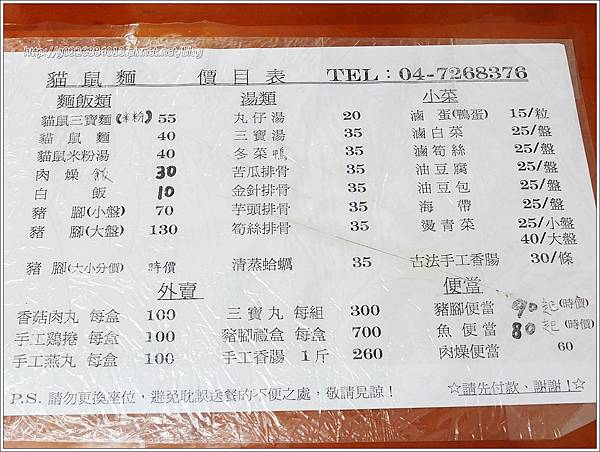 貓鼠麵 價目表 TEL：04-7268376
麵飯類 湯類 小菜
貓鼠三寶麵(米粉) 55 丸仔湯 20 滷蛋(鴨蛋) 15/粒
貓鼠麵 40 三寶湯 35 滷白菜 25/盤
貓鼠米粉湯 40 冬菜鴨 35 滷筍絲 25/盤
肉燥飯 30 苦瓜排骨 35 油豆腐 25/盤
白飯 10 金針排骨 35 油豆包 25/盤
豬腳(小盤) 70 芋頭排骨 35 海帶 25/盤
豬腳(大盤) 130 筍絲排骨 35 燙青菜 25/小盤
40/大盤
豬腳(大小分價) 時價 清蒸蛤蠣 35 古法手工香腸 30/條
外賣 便當
香菇肉丸 每盒 100 三寶丸 每組 300 豬腳便當 90起(時價)
手工鷄捲 每盒 100 豬腳禮盒 每盒 700 魚便當 80起(時價)
手工燕丸 每盒 100 手工香腸 1斤 260 肉燥便當 60
P.S. 請勿更換座位，避免耽誤送餐的不便之處，敬請見諒！ ☆請先付款、謝謝！☆